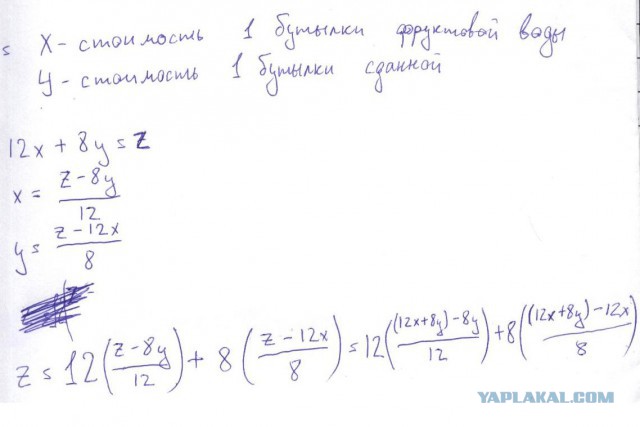 x - стоимость 1 бутылки фруктовой воды
y - стоимость 1 бутылки сданной
12x + 8y = z
x = (z - 8y)/12
y = (z - 12x)/8
z = 12((z - 8y)/12) + 8((z - 12x)/8) = 12(((12x+8y) - 8y)/12) + 8(((12x+8y) - 12x)/8)
YAPLAKAL.COM